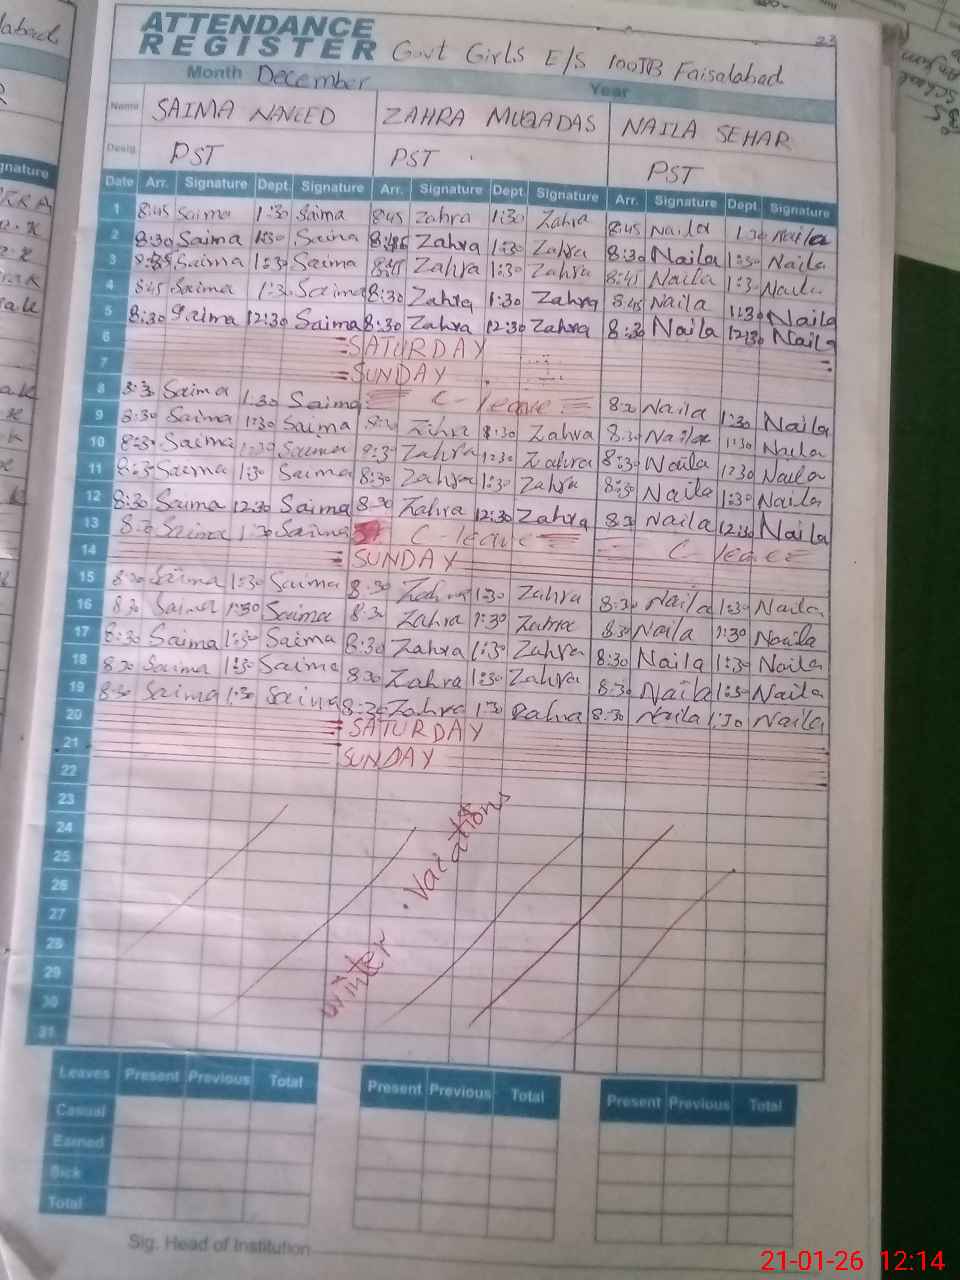 ATTENDANCE
REGISTER Govt Girls E/S 100JB Faisalabad
23
Month December Year
Name SAIMA NAVEED ZAHRA MUQADAS NAILA SEHAR
Desig. PST PST PST
Date Arr. Signature Dept. Signature Arr. Signature Dept. Signature Arr. Signature Dept. Signature
1 8:45 Saima 1:30 Saima 8:45 Zahra 1:30 Zahra 8:45 Naila 1:30 Naila
2 8:30 Saima 1:30 Saima Zahra 1:30 Zahra 8:30 Naila 1:30 Naila
3 Saima 1:30 Saima 8:45 Zahra 1:30 Zahra 8:45 Naila 1:30 Naila
4 8:45 Saima 1:30 Saima 8:30 Zahra 1:30 Zahra 8:45 Naila 1:30 Naila
5 8:30 Saima 12:30 Saima 8:30 Zahra 12:30 Zahra 8:30 Naila 12:30 Naila
6 SATURDAY
7 SUNDAY
8 8:30 Saima 1:30 Saima C-leave 8:30 Naila 1:30 Naila
9 8:30 Saima 1:30 Saima 8:30 Zahra 8:30 Zahra 8:30 Naila 1:30 Naila
10 8:30 Saima 1:30 Saima 8:30 Zahra 12:30 Zahra 8:30 Naila 12:30 Naila
11 8:30 Saima 1:30 Saima 8:30 Zahra 1:30 Zahra 8:30 Naila 1:30 Naila
12 8:30 Saima 12:30 Saima 8:30 Zahra 12:30 Zahra 8:30 Naila 12:30 Naila
13 8:30 Saima 1:30 Saima C-leave C-leave
14 SUNDAY
15 8:30 Saima 1:30 Saima 8:30 Zahra 1:30 Zahra 8:30 Naila 1:30 Naila
16 8:30 Saima 1:30 Saima 8:30 Zahra 1:30 Zahra 8:30 Naila 1:30 Naila
17 8:30 Saima 1:30 Saima 8:30 Zahra 1:30 Zahra 8:30 Naila 1:30 Naila
18 8:30 Saima 1:30 Saima 8:30 Zahra 1:30 Zahra 8:30 Naila 1:30 Naila
19 8:30 Saima 1:30 Saima 8:30 Zahra 1:30 Zahra 8:30 Naila 1:30 Naila
20 SATURDAY
21 SUNDAY
22
23
24
25
26
27
28
29
30
31
winter Vacations
Leaves Present Previous Total Present Previous Total Present Previous Total
Casual
Earned
Sick
Total
Sig. Head of Institution
21-01-26 12:14